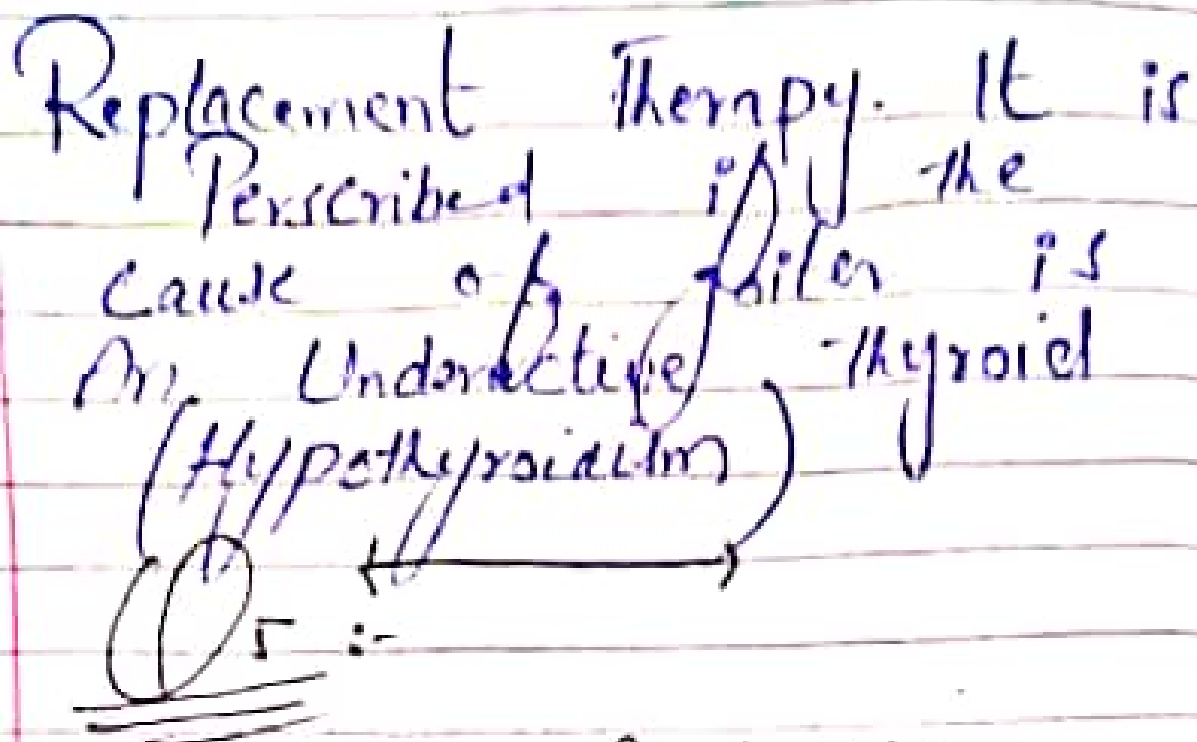 Replacement Therapy. It is
Perscribed if the
cause of goiter is
An Underactive thyroid
(Hypothyroidism)
Q5 :-